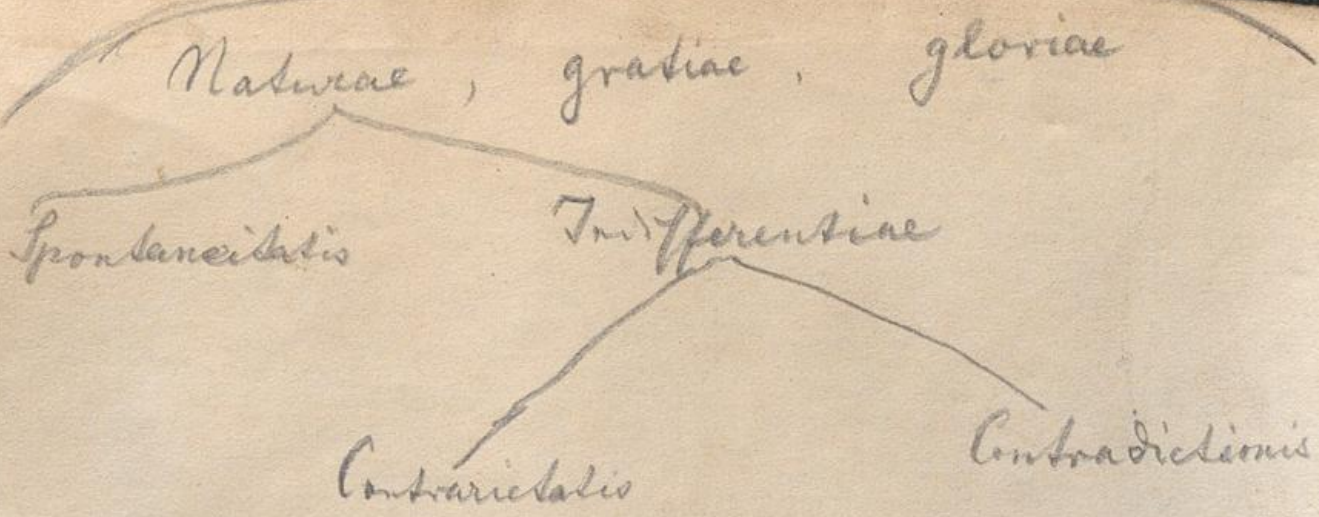 Naturae, gratiae, gloriae
Spontaneitatis Indifferentiae
Contrarietatis Contradictionis